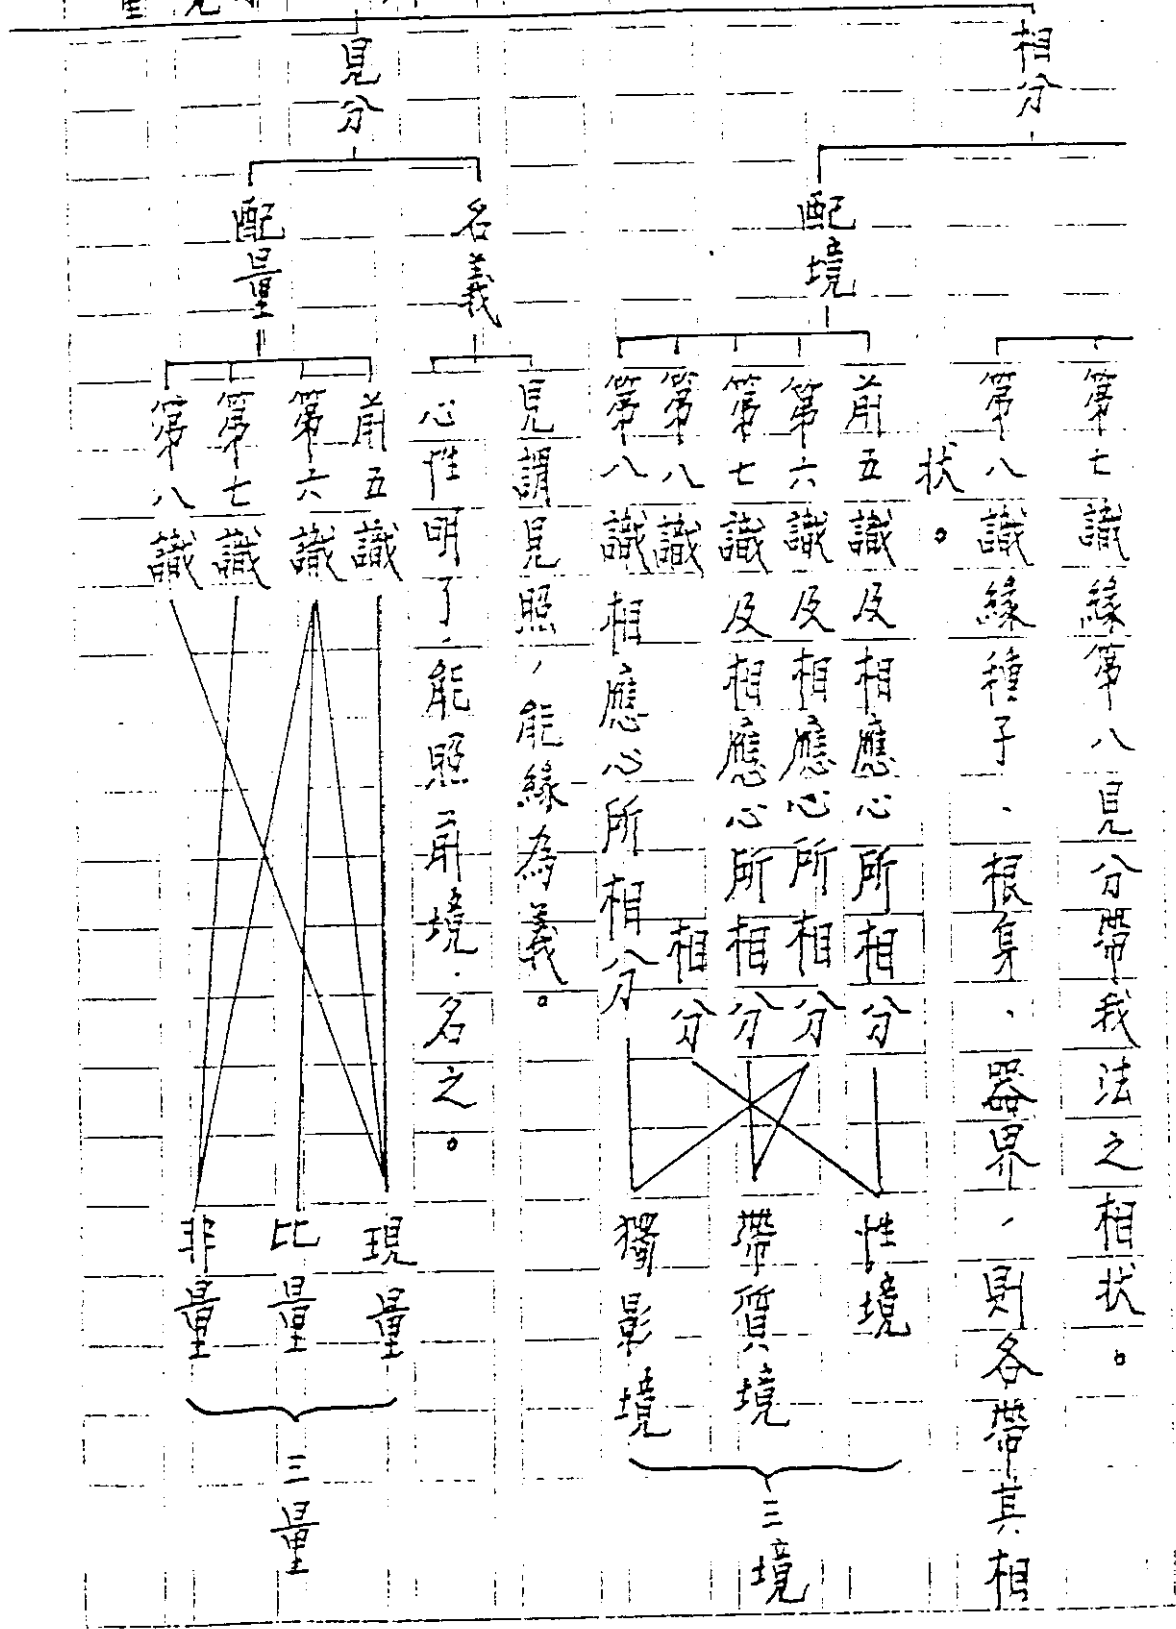 相分
第七識緣第八見分帶我法之相狀。
第八識緣種子、根身、器界,則各帶其相
狀。
配境
前五識及相應心所相分
第六識及相應心所相分
第七識及相應心所相分
第八識相分
第八識相應心所相分
性境
帶質境
獨影境
三境
見分
名義
見謂見照,能緣為義。
心性明了,能照前境,名之。
配量
前五識
第六識
第七識
第八識
現量
比量
非量
三量